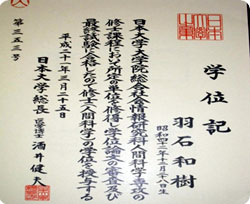 学位記
羽石和樹
昭和四三年十二月二八日生
日本大学大学院総合社会情報研究科人間科学専攻の
修士課程において所定の単位を修得し学位論文の審査及び
最終試験に合格したので修士(人間科学)の学位を授与する
平成二十一年三月二十五日
日本大学総長 医学博士 酒井健夫
第三五三号